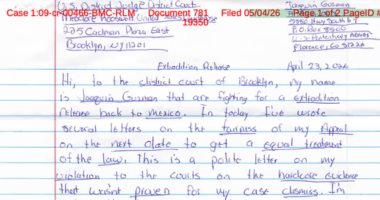 Case 1:09-cr-00466-BMC-RLM Document 781 Filed 05/04/26 Page 1 of 2 PageID #
19350
U.S. District Judge District Court
Theodore Roosevelt United States
225 Cadman Plaza East
Brooklyn, NY 11201
Joaquin Guzman
P.O. Box 8500
Florence, CO 81226
Extradition Release
April 23, 2026
Hi, to the district court of Brooklyn, my name
is Joaquin Guzman that are fighting for a extradition
release back to mexico. In today I've wrote
several letters on the fairness of my Appeal
on the next date to get a equal treatment
of the law. This is a polite letter on my
violation to the courts on the hardcore evidence
that wasn't proven for my case dismiss. I'm